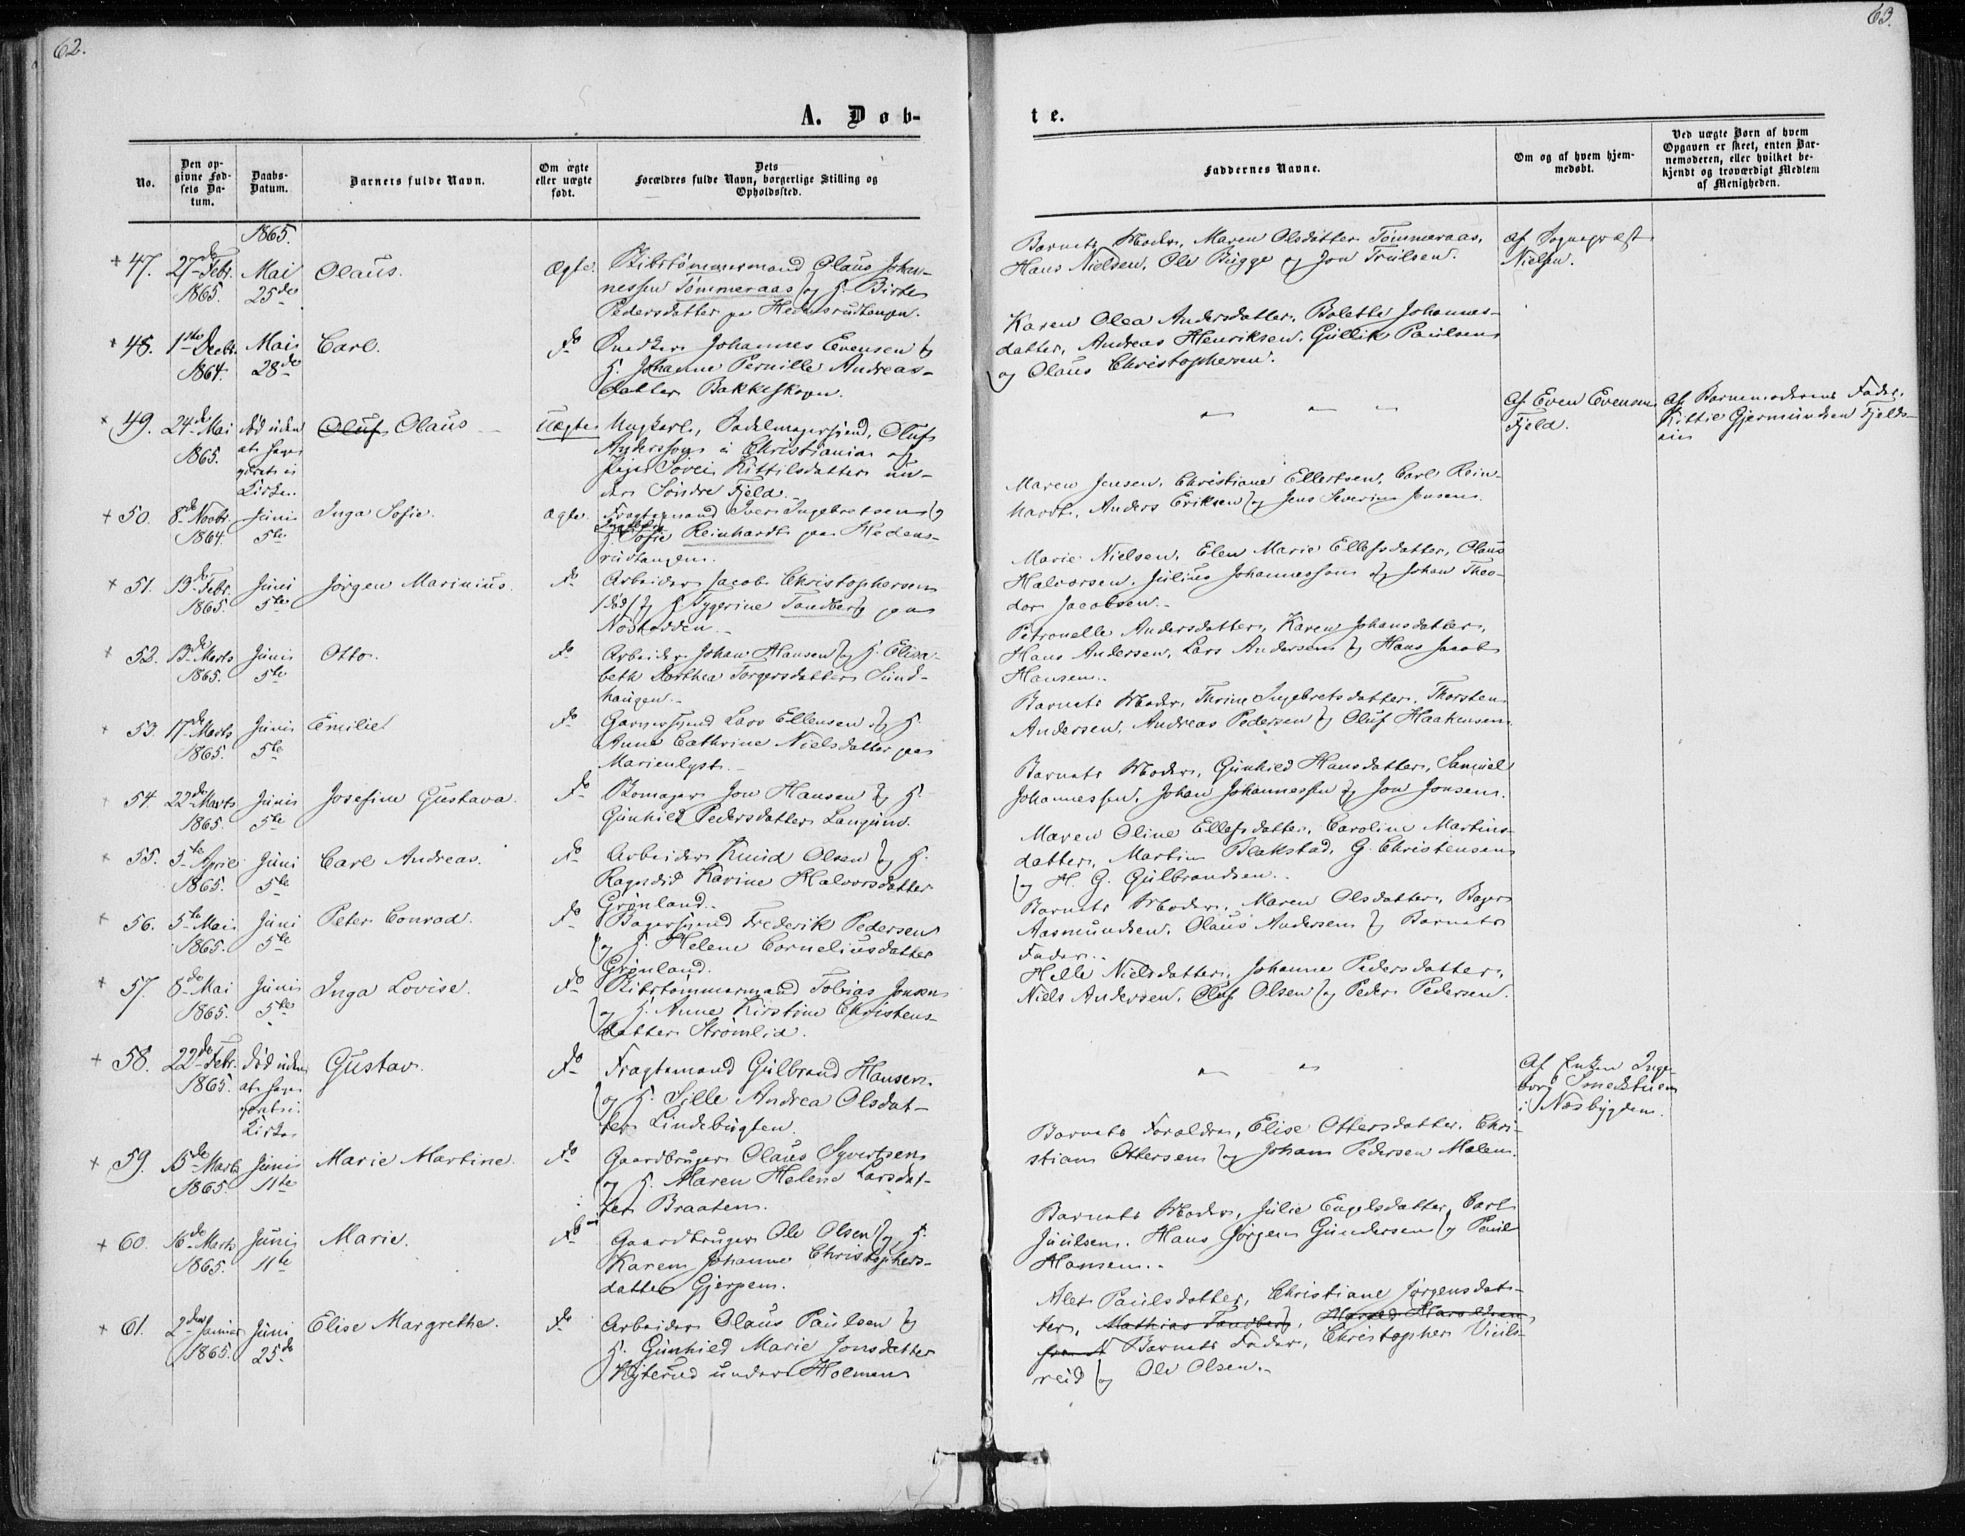 62.
A. Døb-
No.
Den op-
givne Fød-
sels Da-
tum.
Daabs-
Datum.
Barnets fulde Navn.
Om ægte
eller uægte
født.
Dets
Forældres fulde Navn, borgerlige Stilling og
Opholdssted.
1865.
+ 47.
27de Febr.
1865.
Mai
25de
Olaus.
Ægte.
Skibstømmermand Olaus Johan-
nessen Tømmeraas og H. Birte
Pedersdatter paa
+ 48.
1ste Decbr.
1864.
Mai
28de
Carl.
do
Snedker Johannes Evensen og
H. Johanne Pernille Andreas-
datter Bakkeskoven.
× 49.
24de Mai
1865.
død uden
at være
i
Kirken.
Oluf Olaus
Uægte
Ungkarl, Sadelmagersvend, Oluf
i Christiania og
Pige Kittilsdatter un-
der Søndre Fjeld.
+ 50.
8de Novbr.
1864.
Juni
5te
Inga Sofie.
Ægte.
Fragtemand Iver Ingebretsen og
H. Sofie Reinhardt paa Hedens-
rudtangen.
+ 51.
13de Febr.
1865.
Juni
5te
Jørgen Marinius.
do
Arbeider Jacob Christophersen
/død/ og H. Tygerine Tandberg paa
+ 52.
13de Marts
1865.
Juni
5te
Otto.
do
Arbeider Johan Hansen og H. Elisa-
beth Dorthea Torgersdatter Sund-
haugen.
+ 53.
17de Marts
1865.
Juni
5te
Emilie
do
Garversvend Lars Ellensen og H.
Anne Cathrine Nielsdatter paa
Marienlyst.
+ 54.
22de Marts
1865.
Juni
5te
Josefine Gustava.
do
Jon Hansen og H.
Gunhild Pedersdatter Langund.
+ 55.
5te April
1865.
Juni
5te
Carl Andreas.
do
Arbeider Knud Olsen og H.
Ragndid Karine Halvorsdatter
Grønland.
+ 56.
5te Mai
1865.
Juni
5te
Peter Conrad.
do
Bagersvend Frederik Pedersen
og H. Helene Corneliusdatter
Grønland.
+ 57.
8de Mai
1865.
Juni
5te
Inga Lovise.
do
Skibstømmermand Tobias Jonsen
og H. Anne Kirstine Christens-
datter Strømlid.
+ 58.
22de Febr.
1865.
død uden
at være
i
Kirken
Gustav.
do
Fragtemand Gulbrand Hansen
og H. Sille Andrea Olsdat-
ter Lindebugten.
+ 59.
15de Marts
1865.
Juni
11te
Marie Martine.
do
Gaardbruger Olaus Syvertsen
og H. Maren Helene Larsdat-
ter Braaten.
+ 60.
16de Marts
1865.
Juni
11te
Marie.
do
Gaardbruger Ole Olsen og H.
Karen Johanne Christophers-
datter Gjerpen.
+ 61.
2den Januar
1865.
Juni
25de
Elise Margrethe.
do
Arbeider Olaus Paulsen og
H. Gunhild Marie Jonsdatter
Hyterud under Holmen
63.
te.
Faddernes Navne.
Om og af hvem hjem-
medøbt.
Ved uægte Børn af hvem
Opgaven er skeet, enten Bar-
nemoderen, eller hvilket be-
kjendt og troværdigt Medlem
af Menigheden.
Barnets Moder, Maren Olsdatter Tømmeraas,
Hans Nielsen, Ole Bugge og Jon Trulsen.
Af Sognepræst
Nielsen.
Karen Olea Andersdatter, Bolette Johannes-
datter, Andreas Henriksen, Gullik Paulsen
og Olaus Christophersen.
" " "
Af Even Evensen
Fjeld.
Af Barnemoderens Fader,
Kittil Gjermundsen Fjelds-
eie
Maren Jensen, Christiane Ellertsen, Carl Rein-
hardt, Anders Eriksen og Jens Severin Jensen.
Marie Nielsen, Elen Marie Ellefsdatter, Olaus
Halvorsen, Julius Johannessen og Johan Theo-
dor Jacobsen.
Petronelle Andersdatter, Karen Johansdatter,
Hans Andersen, Lars Andersen og Hans Jacob
Hansen.
Barnets Moder, Thrine Ingebretsdatter, Thorsten
Andersen, Andreas Pedersen og Oluf Haakensen
Barnets Moder, Gunhild Hansdatter, Samuel
Johannessen, Johan Johannessen og Jon Jonsen.
Maren Oline Ellefsdatter, Caroline Martins-
datter, Martin Blakstad, G. Christensen
og H. G. Gulbrandsen.
Barnets Moder, Maren Olsdatter, Bager
Aasmundsen, Olaus Andersen og Barnets
Fader.
Helle Nielsdatter, Johanne Pedersdatter,
Niels Andersen, Oluf Olsen og Peder Pedersen.
" "
Af Enken Inge-
borg Smedstuen
i Næsbygden.
Barnets Forældre, Elise Ottersdatter, Chri-
stian Ottersen og Johan Pedersen Moen.
Barnets Moder, Julie Engelsdatter, Carl
Juulsen, Hans Jørgen Gundersen og Paul
Hansen.
Alet Paulsdatter, Christiane Jørgensdat-
ter, Mathias Tandberg,
Barnets Fader, Christopher
og Ole Olsen.